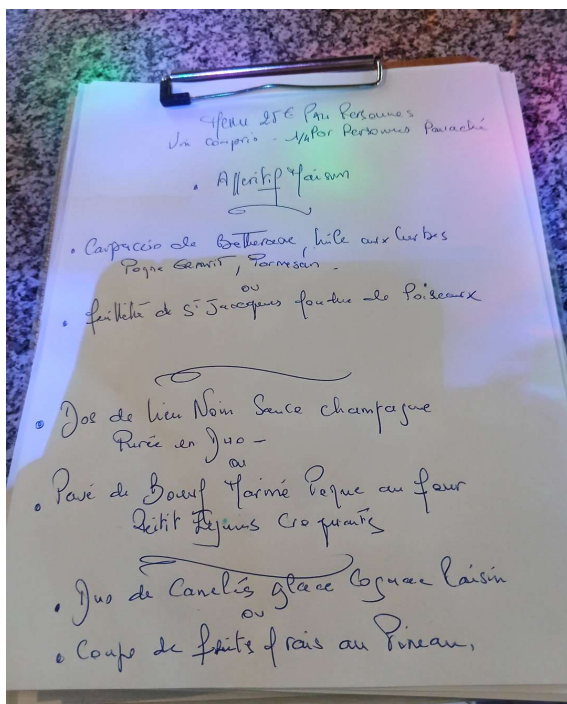 Menu 25€ Par Personnes
Vin compris - 1/4 Par Personnes
Apperitif Maison
• Carpaccio de Betterave, huile aux herbes
Parmesan.
ou
• feuilleté de St Jacques fondue de Poireaux
• Dos de lieu Noir Sauce champagne
Purée en Duo -
ou
• Pavé de Boeuf Mariné au four
Petit légumes croquants
• Duo de Canelés glace Cognac Raisin
ou
• Coupe de fruits frais au Pineau.